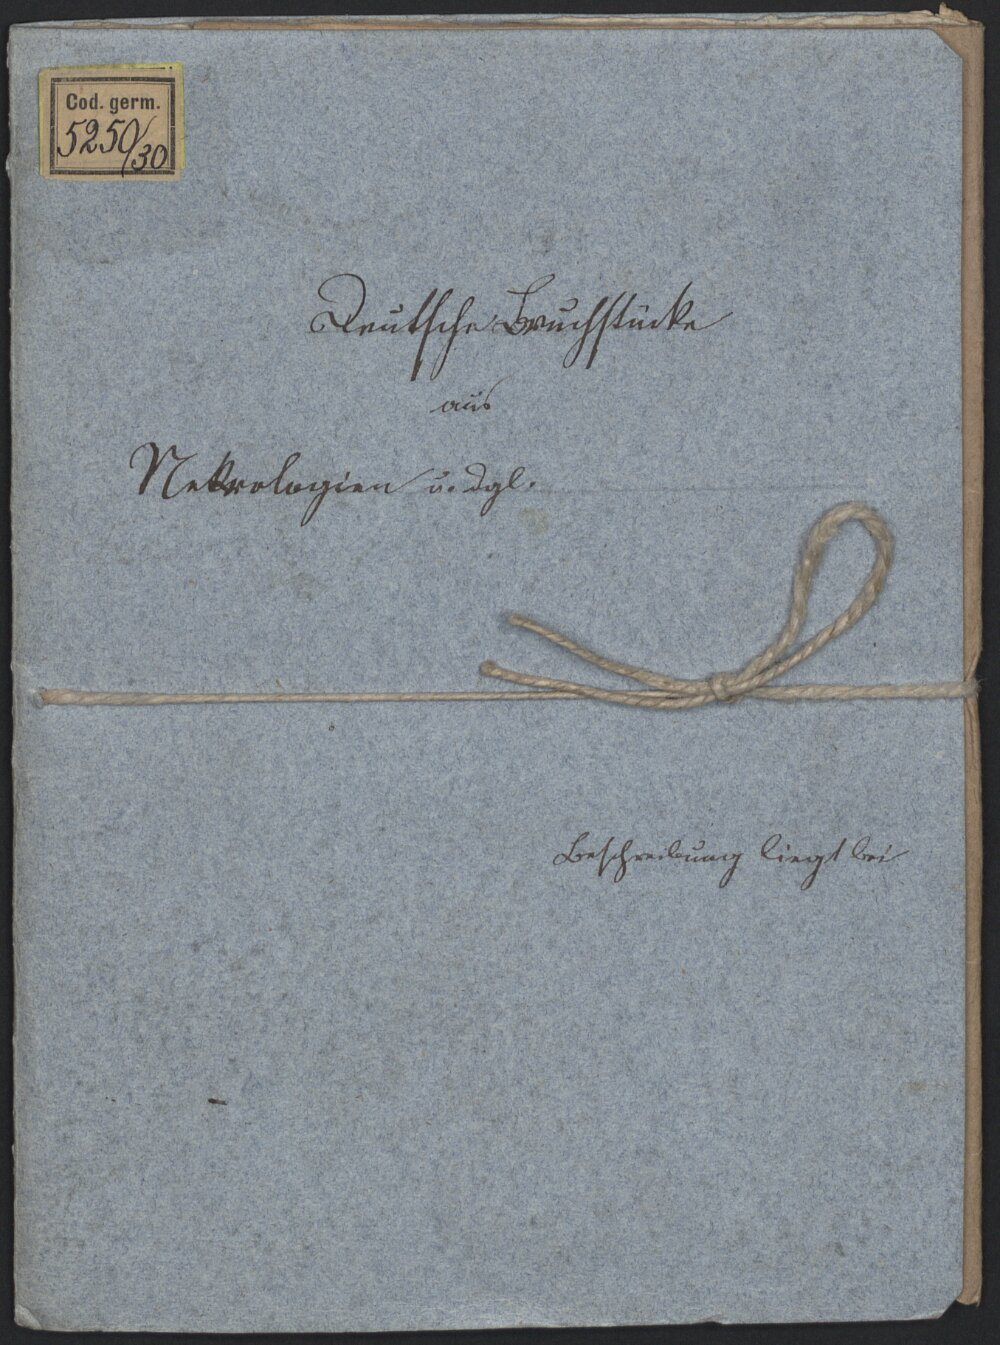 Cod. germ.
5250/30
Deutsche Bruchstücke
aus
Nekrologien u. dgl.
Beschreibung liegt bei